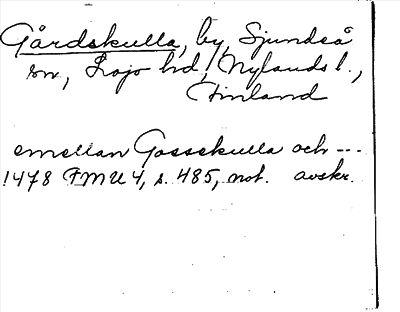 Gårdskulla, by, Sjundeå
sn, Lojo hd, Nylands l.,
Finland
emellan Gosskulla och ---
1478 FMU 4, s. 485, not. avskr.